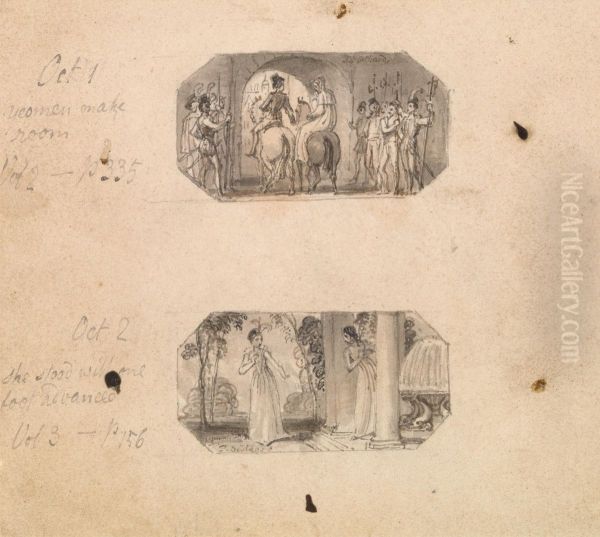 Oct 1
yeomen make
room
Vol 2 — P 335
T. Stothard
Oct 2
she stood with one
foot advanced
Vol 3 — P 156
NiceArtGallery.com